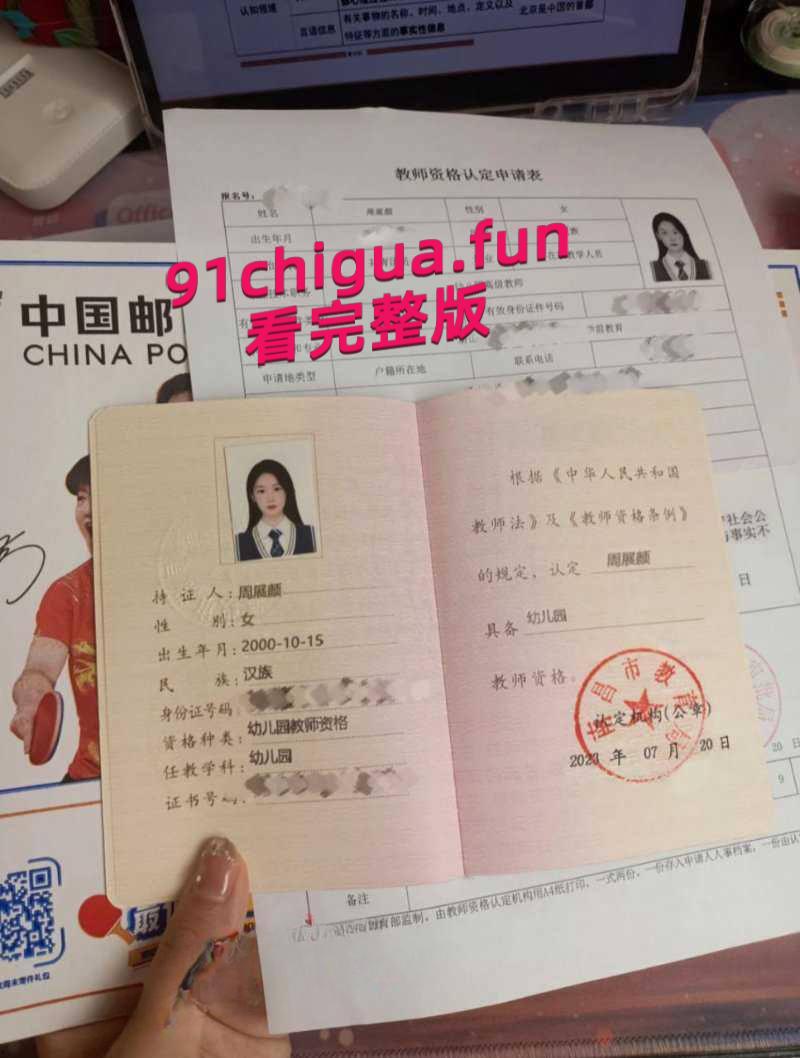 认知领域
言语信息
有关事物的名称、时间、地点、定义以及
特征等方面的事实性信息
北京是中国的首都
教师资格认定申请表
报名号:
姓名
周展颜
性别
女
出生年月
Office
91chigua.fun
看完整版
高级教师
有效身份证件号码
学前教育
申请地类型
户籍所在地
联系电话
中国邮
CHINA PO
根据《中华人民共和国
教师法》及《教师资格条例》
的规定，认定 周展颜
具备 幼儿园
教师资格。
认定机构(公章)
2023 年 07 月 20 日
持证人:周展颜
性别:女
出生年月:2000-10-15
民族:汉族
身份证号码:
资格种类:幼儿园教师资格
任教学科:幼儿园
证书号码:
市教育局
社会公
与事实不
日
20 日
9
备注
育部监制，由教师资格认定机构用A4纸打印，一式两份，一份存入申请人人事档案，一份由认